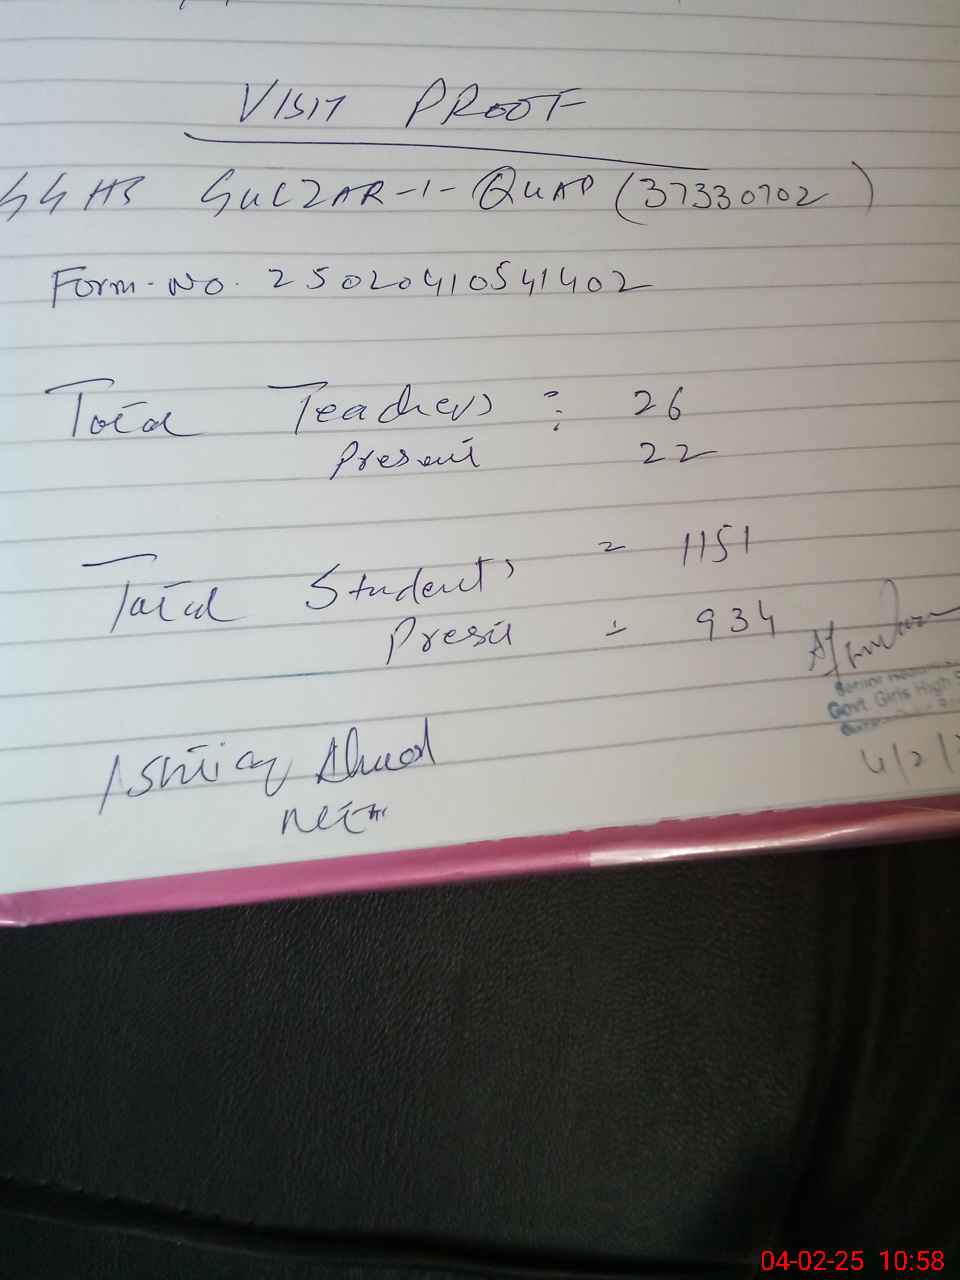 VISIT PROOF
GGHS GULZAR-I-QUAD (37330702)
Form-No. 25020410541402
Total Teachers : 26
Present 22
Total Students = 1151
Present = 934
Ishtiaq Ahmad
Govt. Girls High
4/2/
04-02-25 10:58